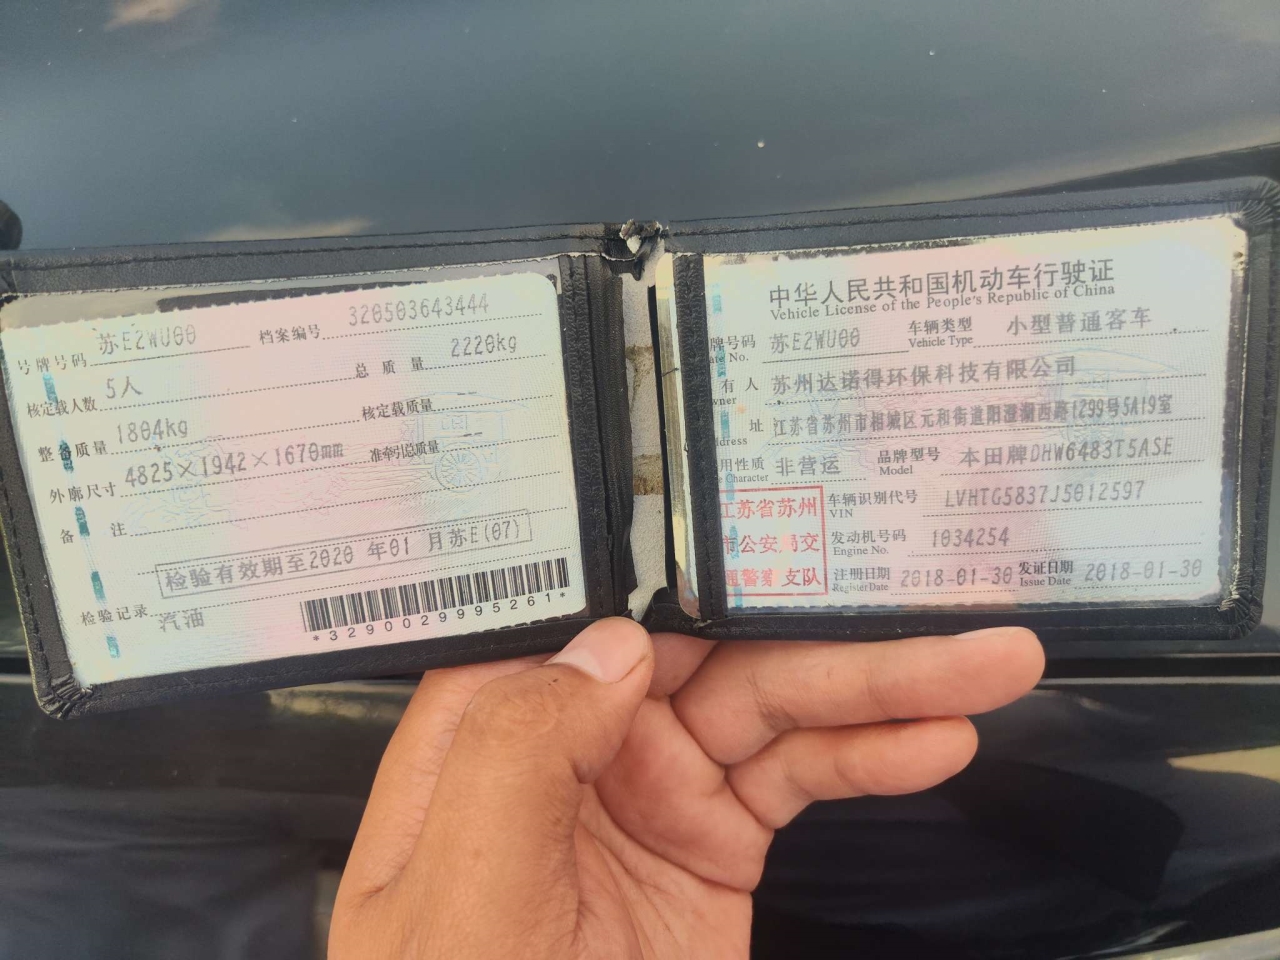 号牌号码 苏E2WU00 档案编号 320503643444
核定载人数 5人 总质量 2220kg
整备质量 1804kg 核定载质量
外廓尺寸 4825×1942×1670mm 准牵引总质量
备注
检验有效期至2020年01月苏E(07)
检验记录 汽油
*3290029995261*
中华人民共和国机动车行驶证
Vehicle License of the People's Republic of China
牌号码 苏E2WU00 车辆类型 小型普通客车
No. Vehicle Type
有人 苏州达诺得环保科技有限公司
址 江苏省苏州市相城区元和街道阳澄湖西路1299号5A19室
用性质 非营运 品牌型号 本田牌DHW6483T5ASE
Character Model
江苏省苏州
市公安局交
通警察支队
车辆识别代号 LVHTG5837J5012597
VIN
发动机号码 1034254
Engine No.
注册日期 2018-01-30 发证日期 2018-01-30
Register Date Issue Date